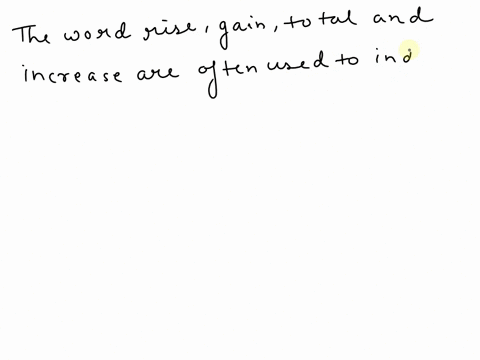 The word rise, gain, total and
increase are often used to ind